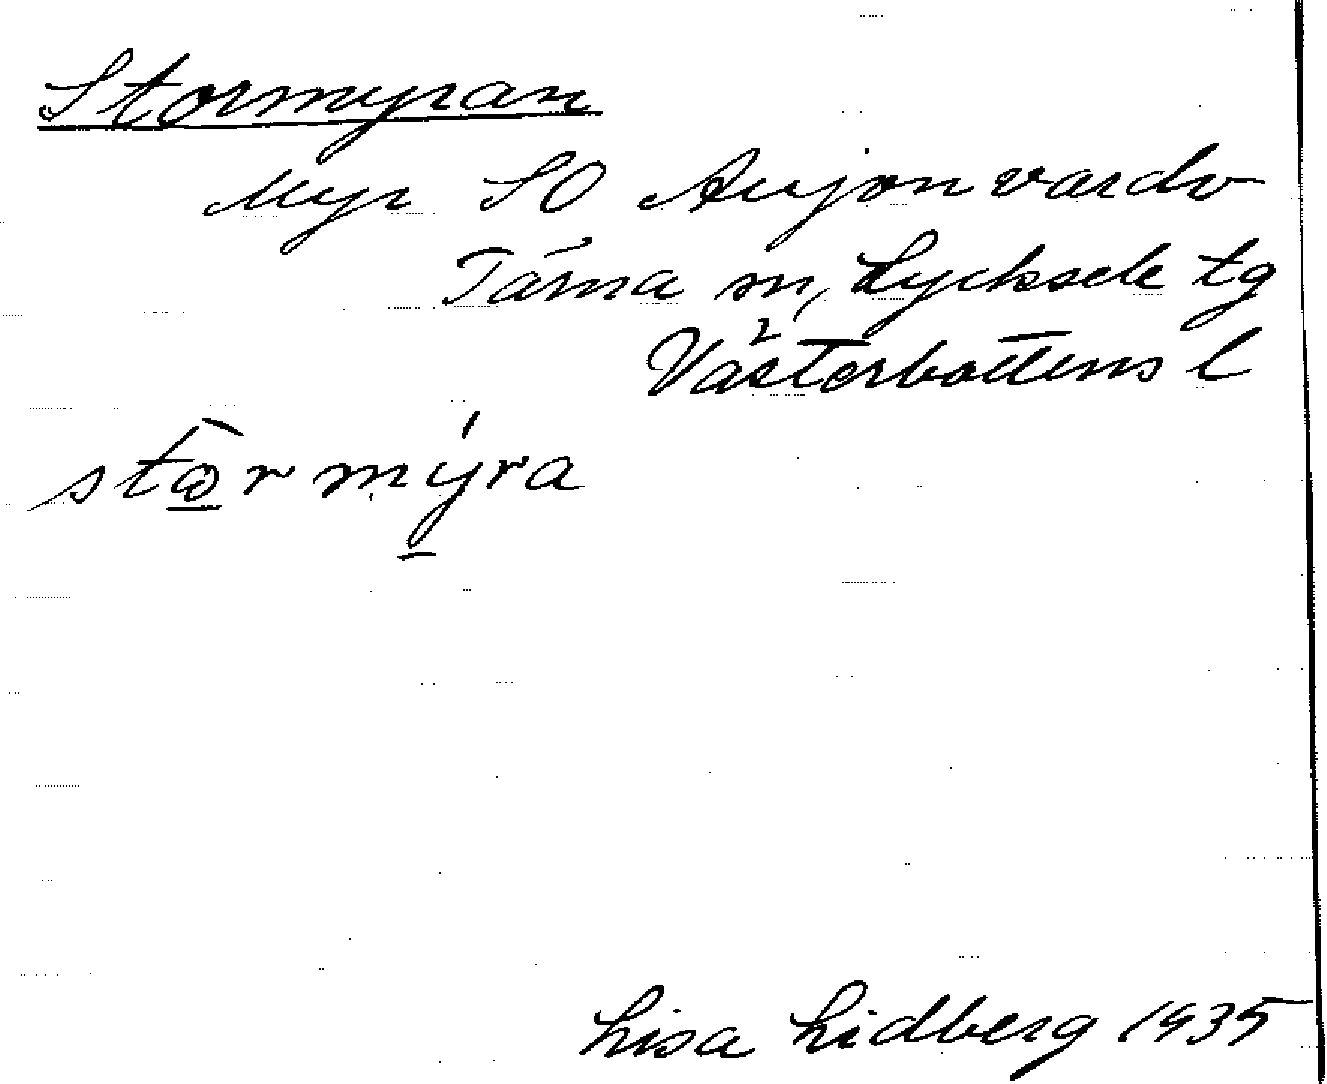 Stormyran
Myr SO Aujonvardo
Tärna sn, Lycksele tg
Västerbottens l
stɷ̀rmýra
Lisa Lidberg 1935